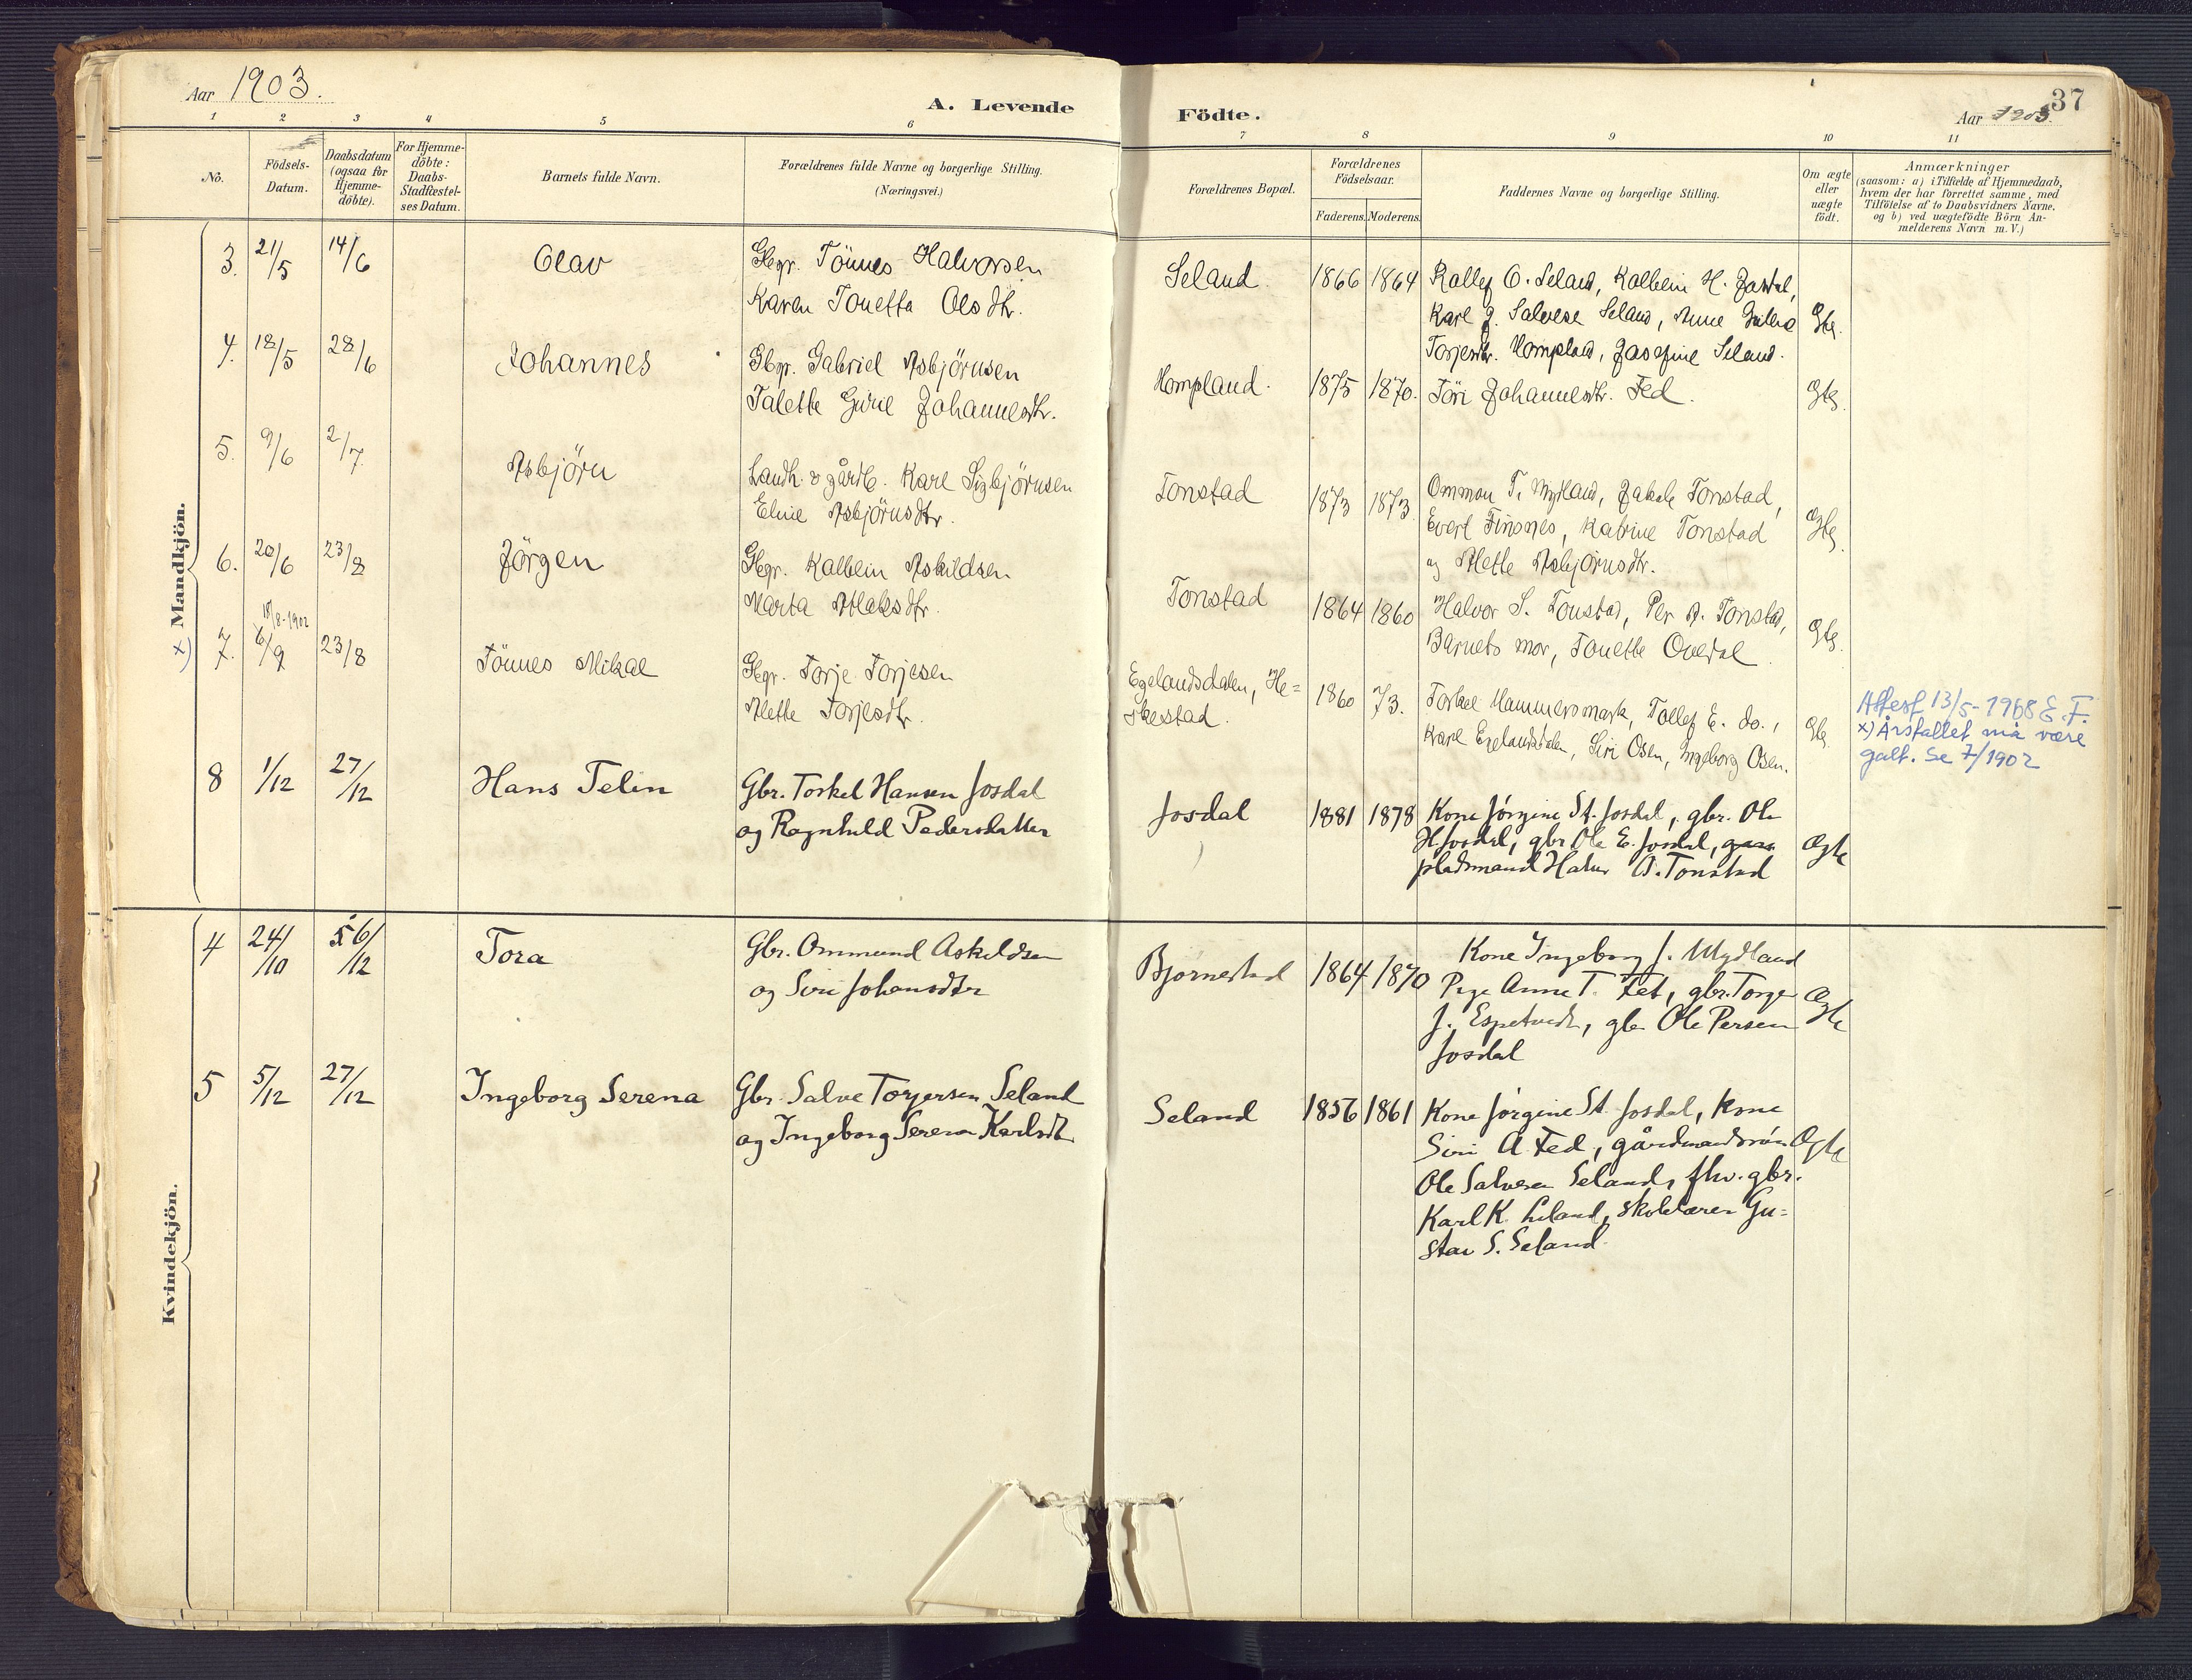 Aar 1903.
A. Levende Födte.
Aar 1903.
37
1 2 3 4 5 6 7 8 9 10 11
No.
Födsels-
Datum.
Daabsdatum
(ogsaa for
Hjemme-
döbte).
For Hjemme-
döbte:
Daabs-
Stadfæstel-
ses Datum.
Barnets fulde Navn.
Forældrenes fulde Navne og borgerlige Stilling.
(Næringsvei.)
Forældrenes Bopæl.
Forældrenes
Födselsaar.
Faderens. Moderens.
Faddernes Navne og borgerlige Stilling.
Om ægte
eller
uægte
födt.
Anmærkninger
(saasom: a) i Tilfælde af Hjemmedaab,
hvem der har forrettet samme, med
Tilföielse af to Daabsvidners Navne.
og b) ved uægtefödte Börn An-
melderens Navn m. V.)
Mandkjön.
3. 21/5 14/6 Olav
Gbgr. Tönnes Halvorsen
Karen Tonetta Olsdtr.
Seland. 1866 1864
Rollef O. Seland, Kolbein H. Josdal,
Karl J. Salvese Seland, Anne
Torjesdtr. Hompland, Josefine Seland.
Ægte.
4. 18/5 28/6 Johannes
Gbgr. Gabriel Asbjörnsen
Talette Gurie Johannesdtr.
Hompland. 1875 1870.
Töri Johannesdtr. Fed.
Ægte.
5. 9/6 2/7. Asbjörn
Landh. & gårdb. Karl Sigbjörnsen
Eline Asbjörnsdtr.
Tonstad 1873 1873.
Ommon T. Mydland, Jakob Tonstad,
Evert Finsnes, Katrine Tonstad
og Mette Asbjörnsdtr.
Ægte.
6. 20/6 23/8 Jörgen
Gbgr. Kolbein Askildsen.
Marta Atlaksdtr.
Tonstad 1864 1860
Halvor S. Tonstad, Per A. Tonstad,
Barnets mor, Tonette Ovedal.
Ægte.
x) 7. 18/8-1902
6/9 23/8 Tönnes Mikal
Gbgr. Torje Torjesen
Mette Torjesdtr.
Egelandsdalen, He=
skestad. 1860 73.
Torkel Hammersmark, Tollef E. do.,
Karl Egelandsdalen, Siri Osen, Ingeborg Osen.
Ægte.
Attest 13/5-1968 E.F.
x) Årstallet må være
galt. Se 7/1902
8 1/12 27/12 Hans Telin
Gbr. Torkel Hansen Josdal
og Ragnhild Pedersdatter
Josdal 1881 1878
Kone Jörgine St. Josdal, gbr. Ole
H Josdal, gbr Ole E. Josdal,
pladsmand Halvor A. Tonstad
Ægte
Kvindekjön.
4 24/10 6/12 Tora
Gbr. Ommund Askildsen
og Siri Johansdtr
Bjørnestad 1864 1870
Kone Ingeborg J. Mydland
Pige Anne T. Fet, gbr. Torge
J. Espetvedt, gbr Ole Persen
Josdal
Ægte
5 5/12 27/12 Ingeborg Serena
Gbr. Salve Torjersen Seland
og Ingeborg Serena Karlsdtr
Seland 1856 1861
Kone Jørgine St. Josdal, Kone
Siri A. Fed, gårdmandssøn
Ole Salvesen Seland, fhv. gbr.
Karl K. Seland, skolelærer Gu=
stav S. Seland.
Ægte